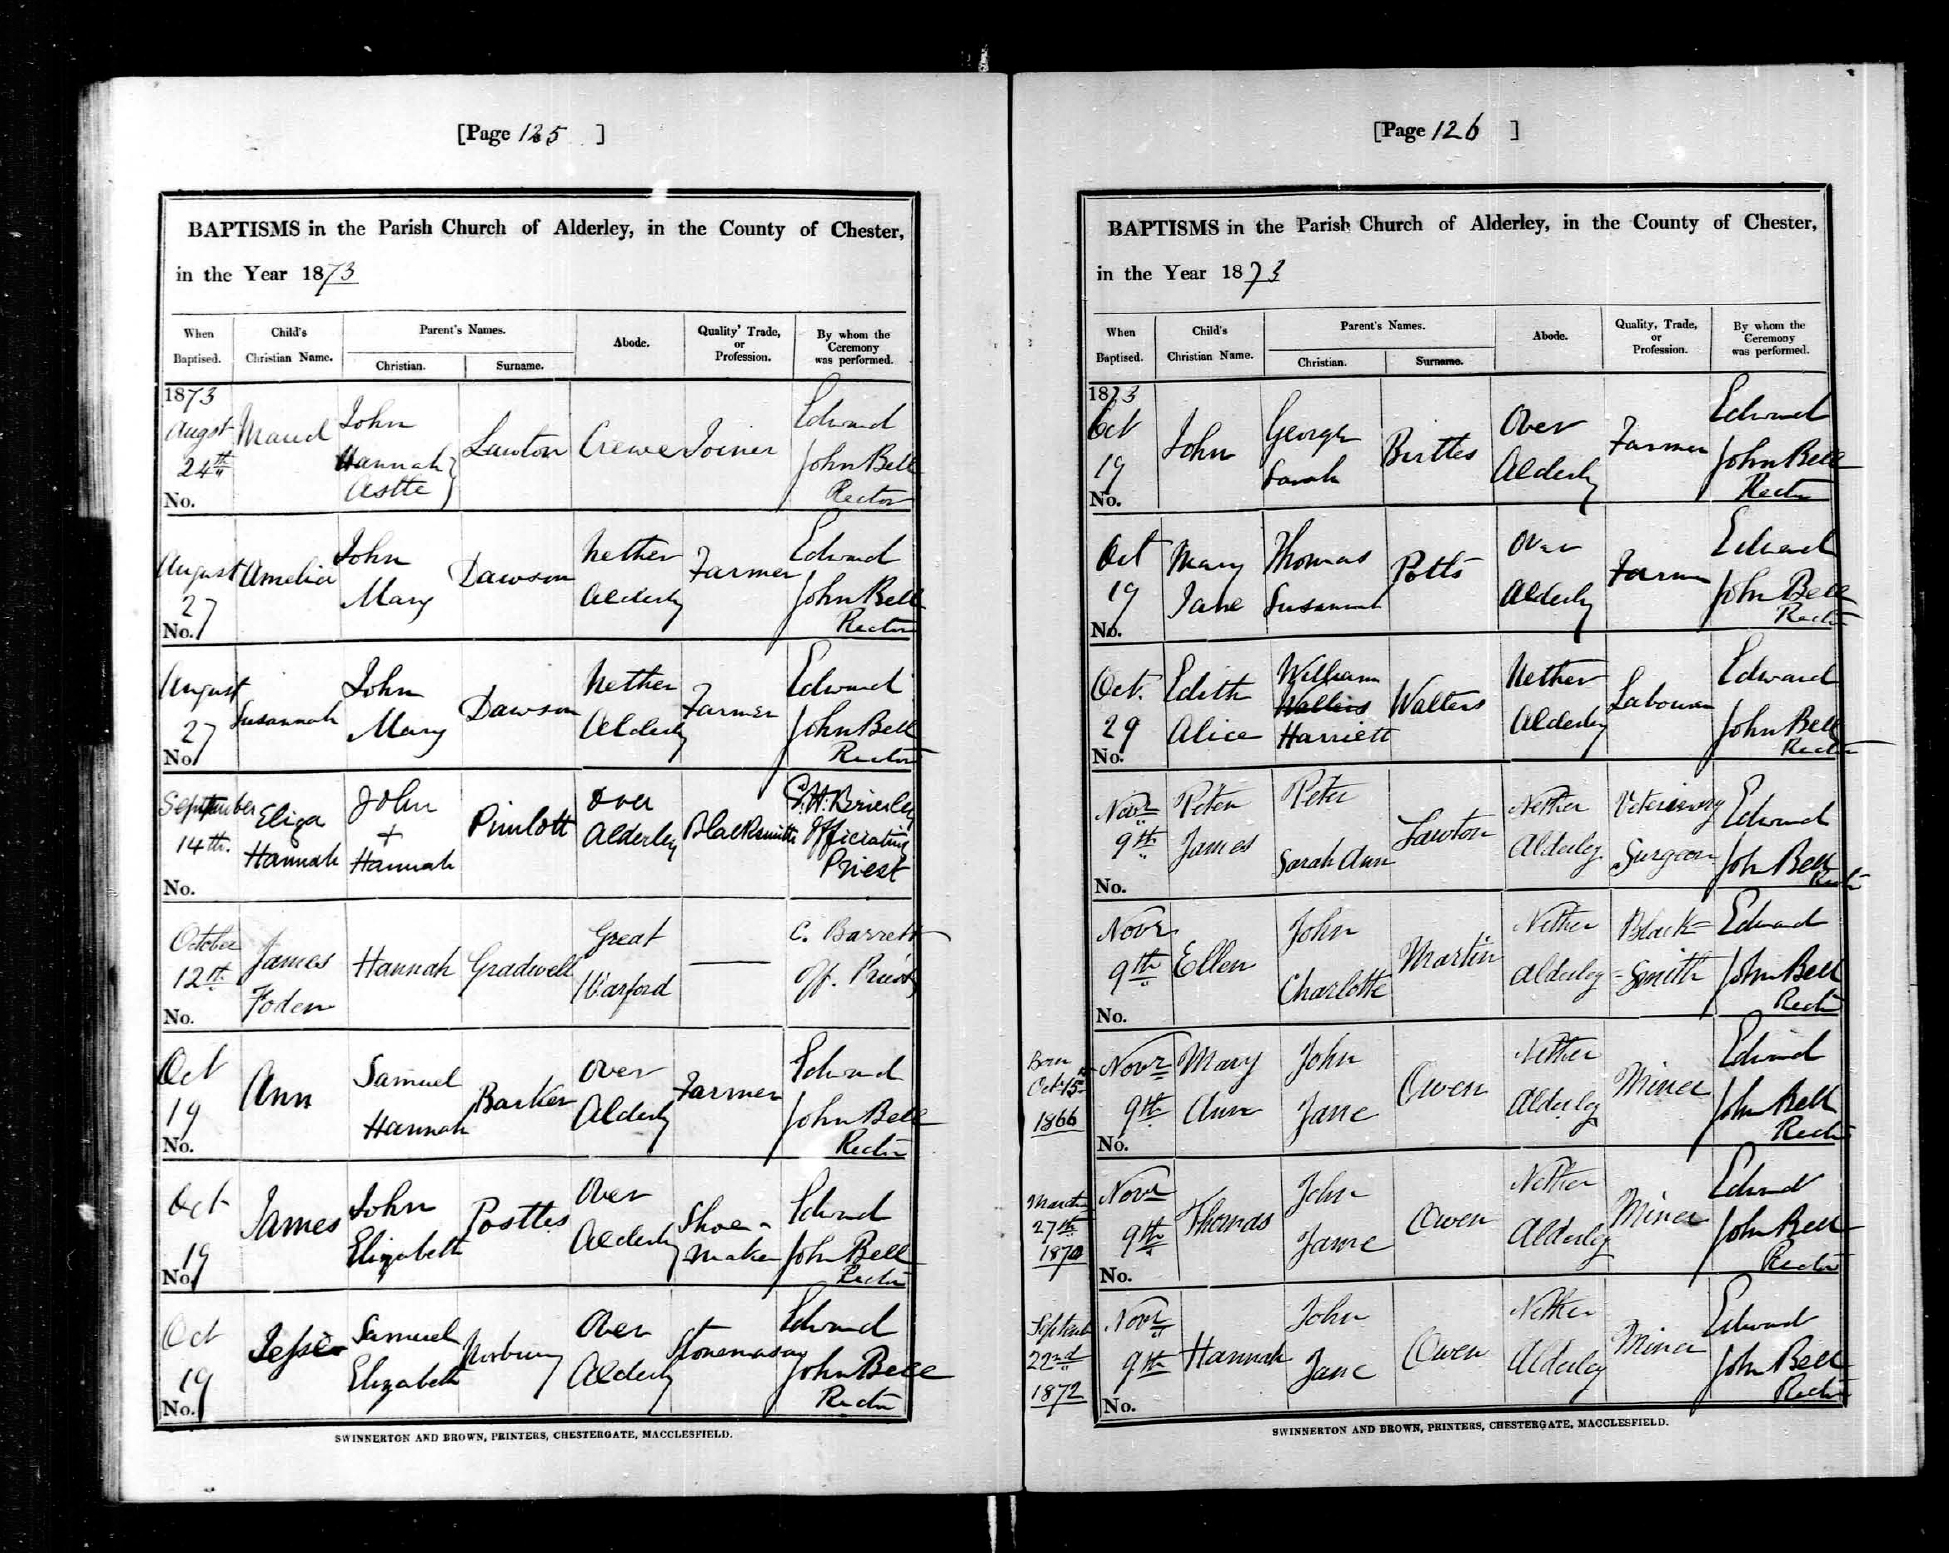 [Page 125 ]
BAPTISMS in the Parish Church of Alderley, in the County of Chester,
in the Year 1873
When Baptised. Child's Christian Name. Parent's Names. Christian. Surname. Abode. Quality, Trade, or Profession. By whom the Ceremony was performed.
1873
Augst 24th Maud John Hannah Astle Lawton Crewe Joiner Edward John Bell Rector
No.
August 27 Amelia John Mary Dawson Nether Alderley Farmer Edward John Bell Rector
No.
August 27 Susannah John Mary Dawson Nether Alderley Farmer Edward John Bell Rector
No.
September 14th. Eliza Hannah John + Hannah Pimlott Over Alderley Blacksmith Brierley Officiating Priest
No.
October 12th James Foden Hannah Gradwell Great Warford — C. Barrett Off. Priest
No.
Oct 19 Ann Samuel Hannah Barker Over Alderley Farmer Edward John Bell Rector
No.
Oct 19 James John Elizabeth Postles Over Alderley Shoe-maker Edward John Bell Rector
No.
Oct 19 Jessie Samuel Elizabeth Norbury Over Alderley Stonemason Edward John Bell Rector
No.
SWINNERTON AND BROWN, PRINTERS, CHESTERGATE, MACCLESFIELD.
[Page 126 ]
BAPTISMS in the Parish Church of Alderley, in the County of Chester,
in the Year 1873
When Baptised. Child's Christian Name. Parent's Names. Christian. Surname. Abode. Quality, Trade, or Profession. By whom the Ceremony was performed.
1873
Oct 19 John George Sarah Birtles Over Alderley Farmer Edward John Bell Rector
No.
Oct 19 Mary Jane Thomas Susannah Potts Over Alderley Farmer Edward John Bell Rector
No.
Oct. 29 Edith Alice William Harriett Walters Nether Alderley Labourer Edward John Bell Rector
No.
Novr 9th Peter James Peter Sarah Ann Lawton Nether Alderley Veterinary Surgeon Edward John Bell Rector
No.
Novr 9th Ellen John Charlotte Martin Nether Alderley Black-Smith Edward John Bell Rector
No.
Born Oct 15th 1866 Novr 9th Mary Ann John Jane Owen Nether Alderley Miner Edward John Bell Rector
No.
March 27th 1870 Novr 9th Thomas John Jane Owen Nether Alderley Miner Edward John Bell Rector
No.
Septemb 22nd 1872 Novr 9th Hannah John Jane Owen Nether Alderley Miner Edward John Bell Rector
No.
SWINNERTON AND BROWN, PRINTERS, CHESTERGATE, MACCLESFIELD.